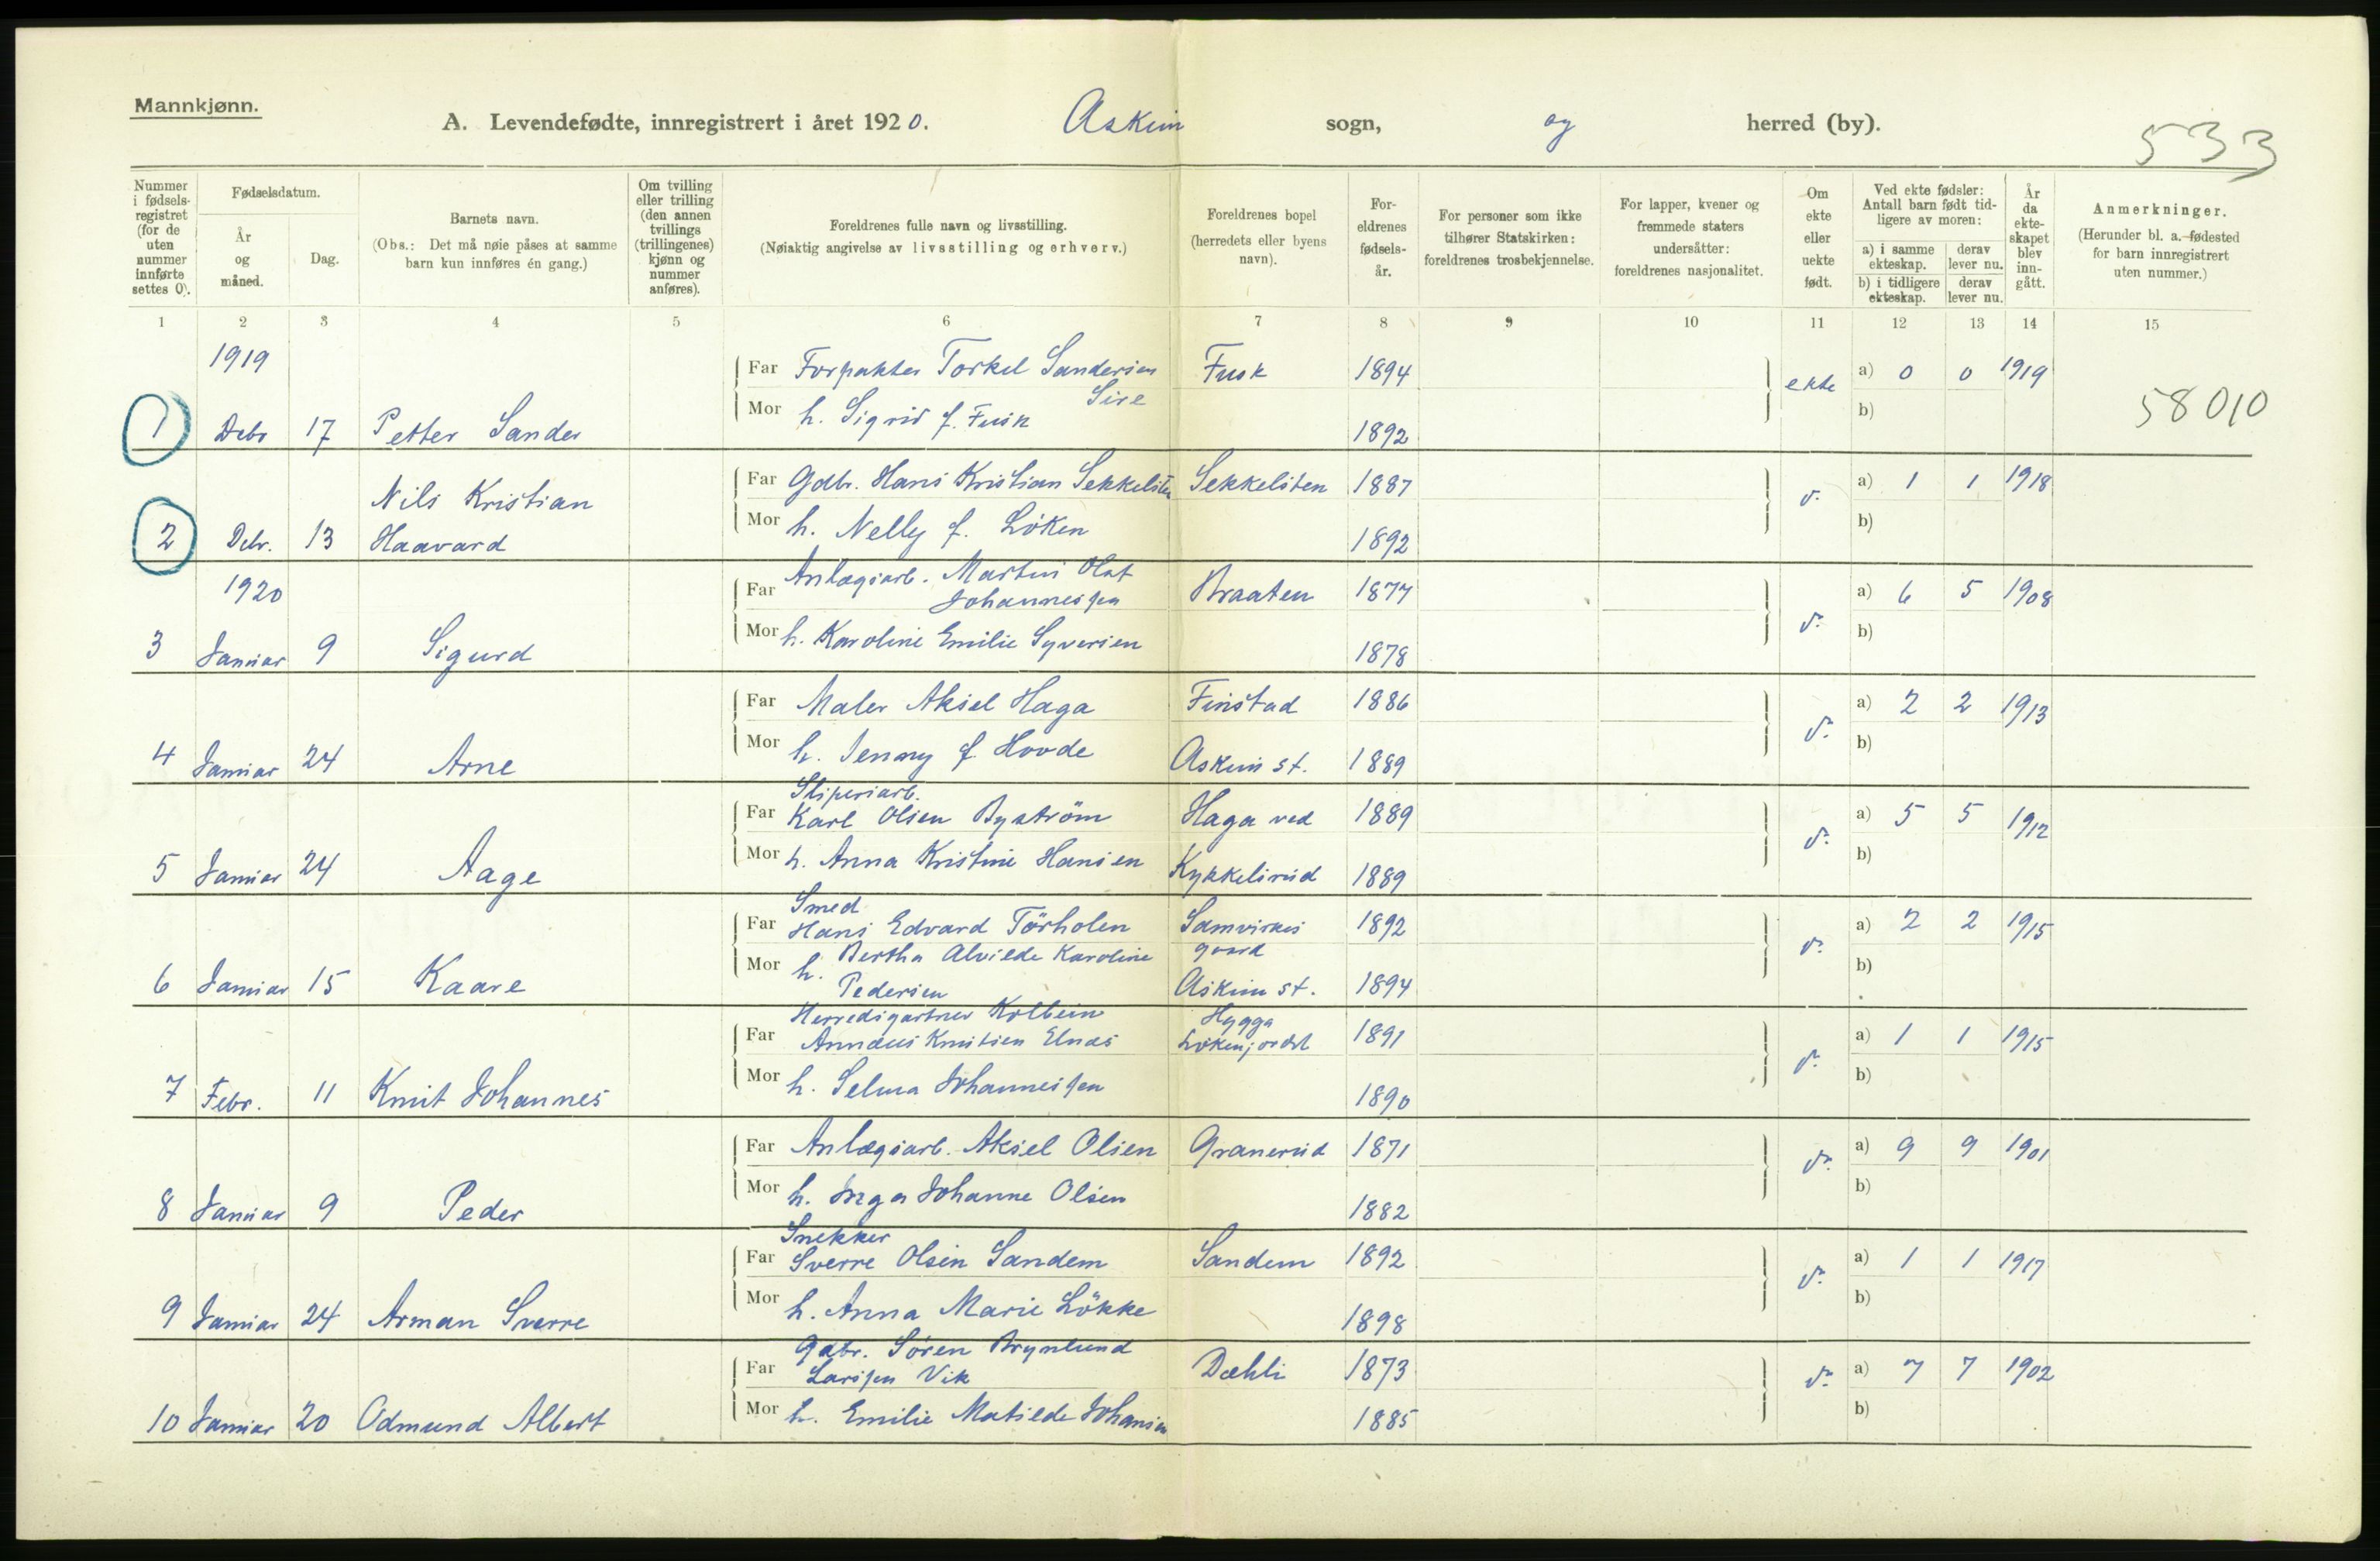 Mannkjønn.
A. Levendefødte, innregistrert i året 1920. Askim sogn, og herred (by).
533
Nummer i fødselsregistret (for de uten nummer innførte settes 0).
Fødselsdatum.
År og måned.
Dag.
Barnets navn.
(Obs.: Det må nøie påses at samme barn kun innføres én gang.)
Om tvilling eller trilling (den annen tvillings (trillingenes) kjønn og nummer anføres).
Foreldrenes fulle navn og livsstilling.
(Nøiaktig angivelse av livsstilling og erhverv.)
Foreldrenes bopel (herredets eller byens navn).
Foreldrenes fødselsår.
For personer som ikke tilhører Statskirken: foreldrenes trosbekjennelse.
For lapper, kvener og fremmede staters undersåtter: foreldrenes nasjonalitet.
Om ekte eller uekte født.
Ved ekte fødsler: Antall barn født tidligere av moren:
a) i samme ekteskap. derav lever nu.
b) i tidligere ekteskap. derav lever nu.
År da ekteskapet blev inngått.
Anmerkninger.
(Herunder bl. a. fødested for barn innregistrert uten nummer.)
1 2 3 4 5 6 7 8 9 10 11 12 13 14 15
1919
Far Forpakter Torkel Sandersen Fusk 1894 ekte a) 0 0 1919
Sire
Mor h. Sigrid f. Fusk 1892 b)
58010
1 Debr 17 Petter Sander
Far Gdbr. Hans Kristian Sekkelsten Sekkelsten 1887 d. a) 1 1 1918
Nils Kristian
Mor h. Nelly f. Löken 1892 b)
2 Debr. 13 Haavard
1920
Far Anlægsarb. Martin Olaf
Johannessen Braaten 1877 d. a) 6 5 1908
Mor h. Karoline Emilie Syversen 1878 b)
3 Januar 9 Sigurd
Far Maler Aksel Haga Finstad 1886 d. a) 2 2 1913
Mor h. Jenny f. Hovde Askim st. 1889 b)
4 Januar 24 Arne
Sliperiarb.
Far Karl Olsen Byström Haga ved 1889 d. a) 5 5 1912
Mor h. Anna Kristine Hansen Kykkelsrud 1889 b)
5 Januar 24 Aage
Smed
Far Hans Edvard Törholen Samvirkes 1892 d. a) 2 2 1915
Mor h. Bertha Alvilde Karoline gaard b)
Pedersen Askim st. 1894
6 Januar 15 Kaare
Herredsgartner Kolbein Hygga
Far Annæus Knutsen Elnæs Lökenjordet 1891 d. a) 1 1 1915
Mor h. Selma Johannessen 1890 b)
7 Febr. 11 Knut Johannes
Far Anlægsarb. Aksel Olsen Granerud 1871 d. a) 9 9 1901
Mor h. Inga Johanne Olsen 1882 b)
8 Januar 9 Peder
Snekker
Far Sverre Olsen Sandem Sandem 1892 d. a) 1 1 1917
Mor h. Anna Marie Lökke 1898 b)
9 Januar 24 Arman Sverre
Gdbr. Sören Brynlund
Far Larssen Vik Dæhli 1873 d. a) 7 7 1902
Mor h. Emilie Matilde Johansen 1885 b)
10 Januar 20 Odmund Albert